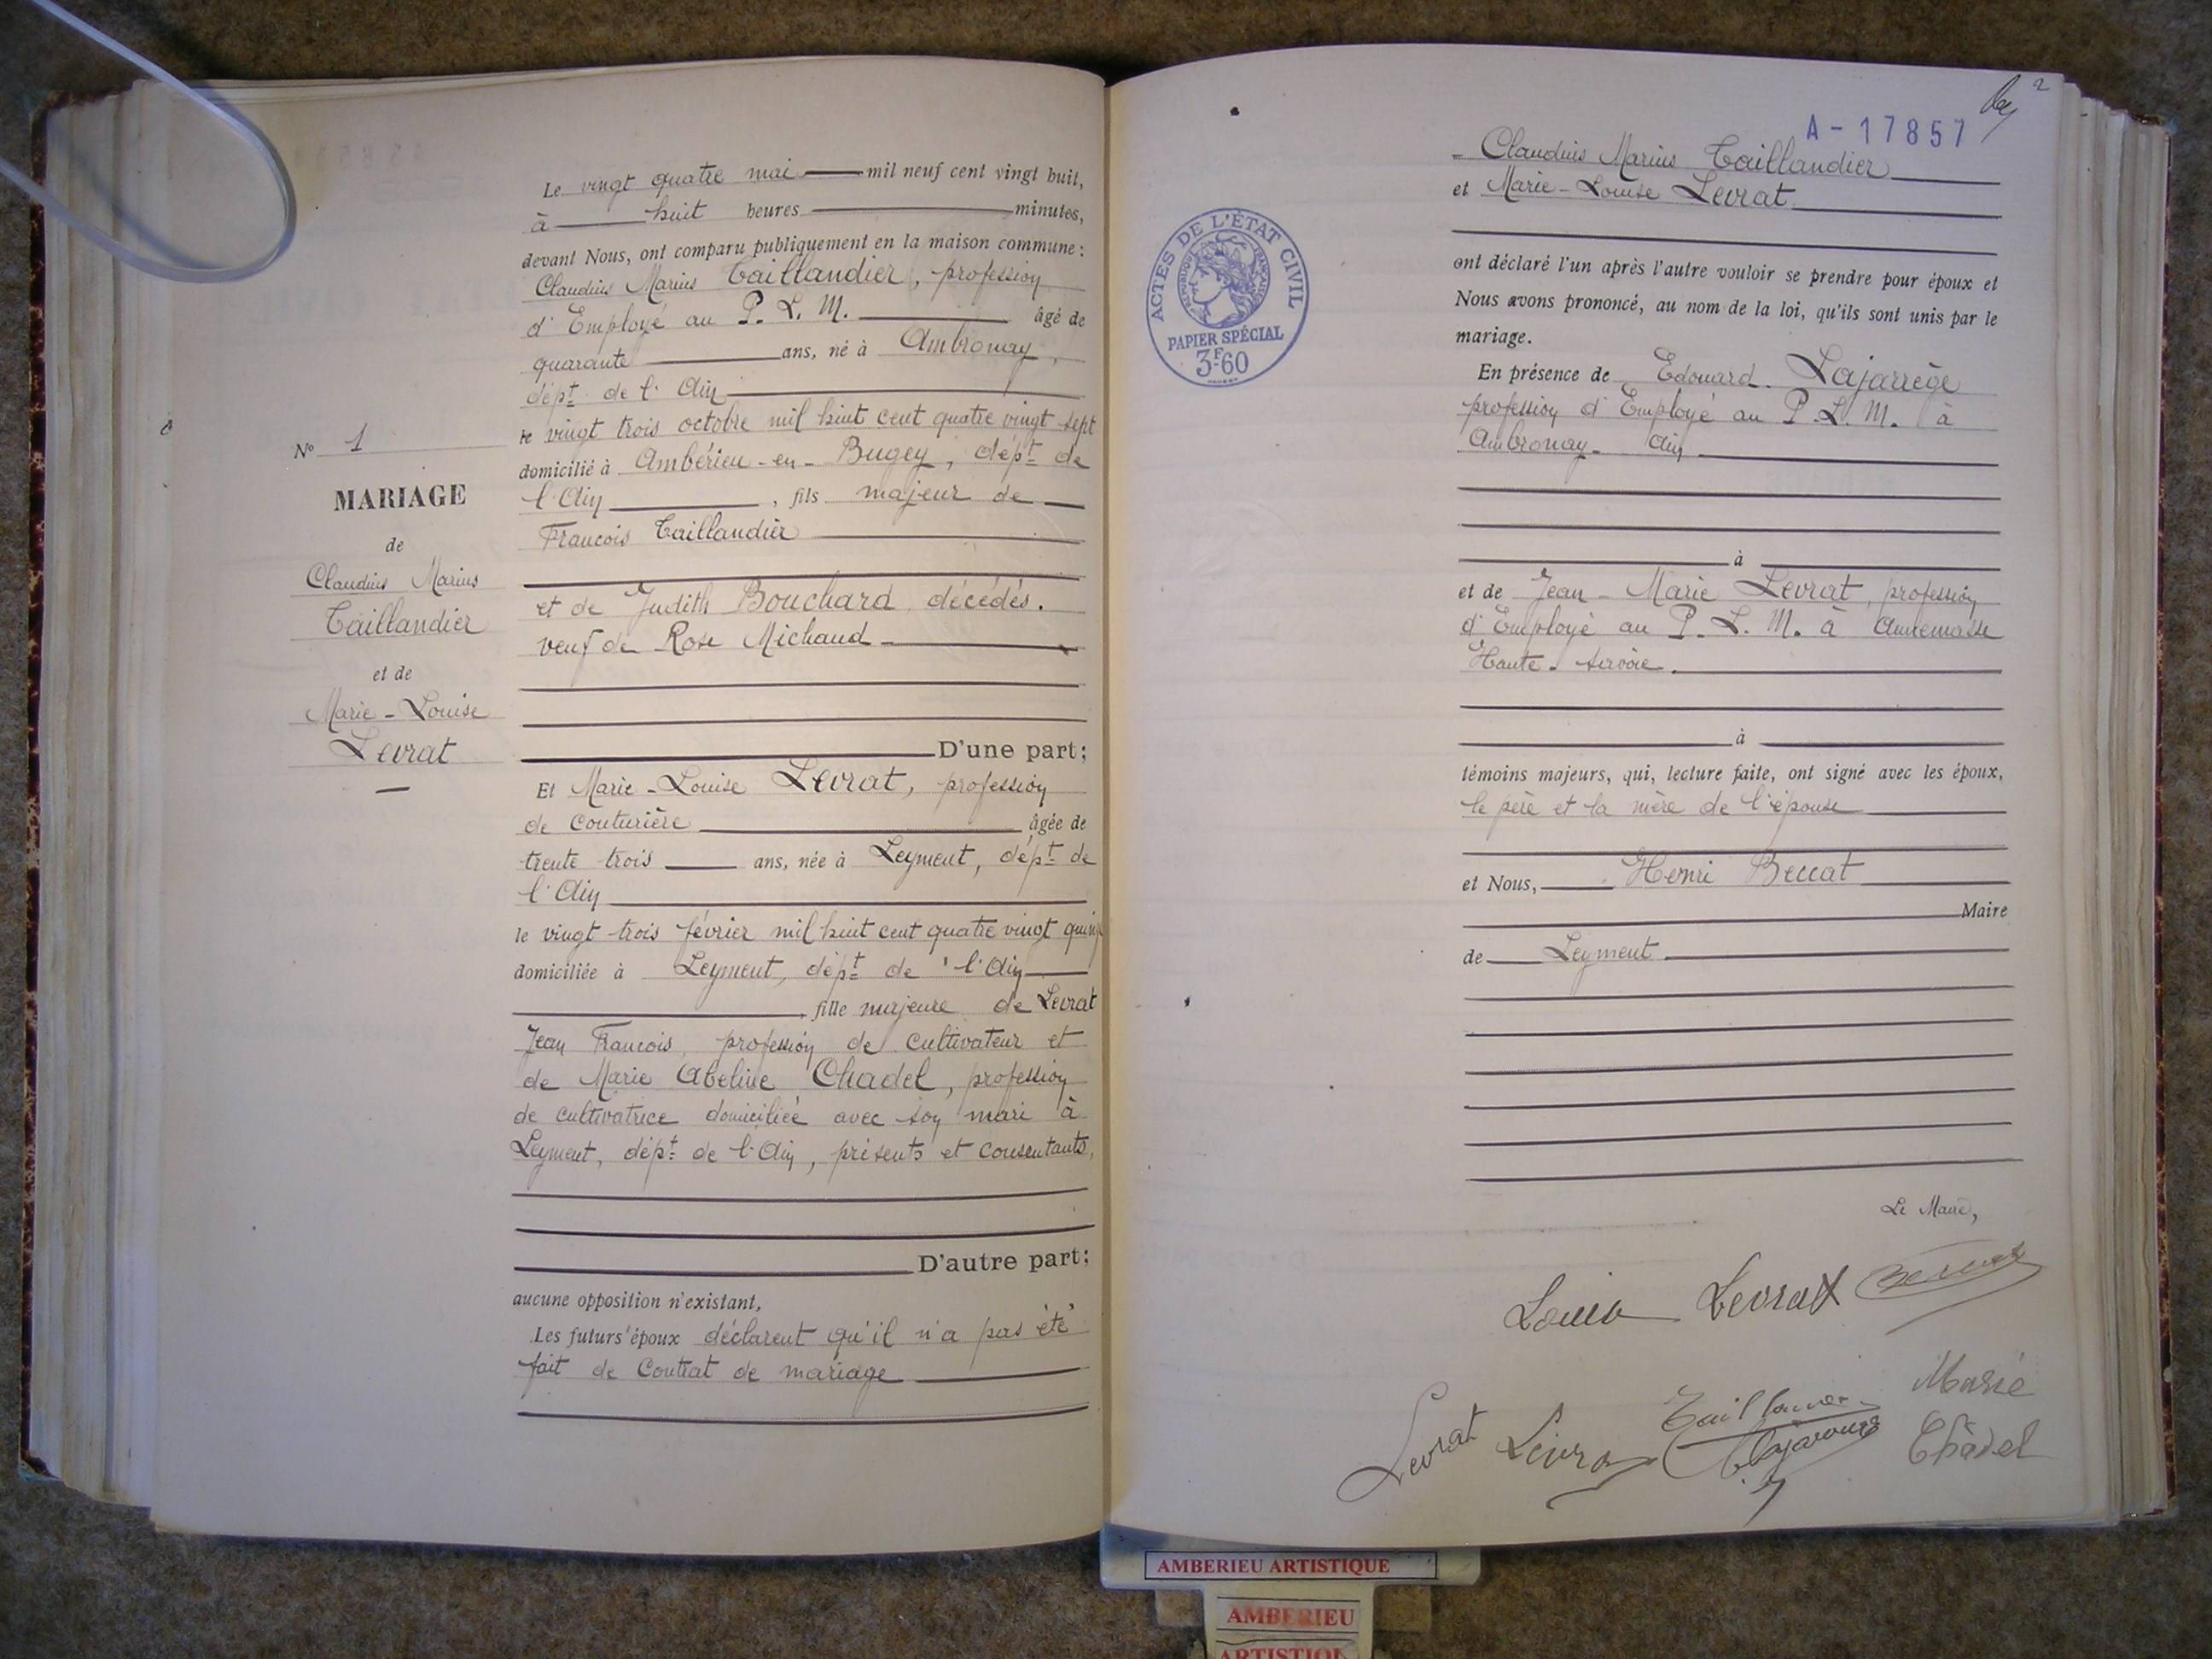 Le vingt quatre mai mil neuf cent vingt huit,
à huit heures minutes,
devant Nous, ont comparu publiquement en la maison commune :
Claudius Marius Taillandier, profession
d'Employé au P. L. M. âgé de
quarante ans, né à Ambronay,
dépt de l'Ain
le vingt trois octobre mil huit cent quatre vingt sept
domicilié à Ambérieu-en-Bugey, dépt de
l'Ain, fils majeur de
Francois Taillandier
et de Judith Bouchard décédés.
veuf de Rose Michaud
D'une part;
Nº 1
MARIAGE
de
Claudius Marius
Taillandier
et de
Marie-Louise
Levrat
Et Marie-Louise Levrat, profession
de couturière âgée de
trente trois ans, née à Leyment, dépt de
l'Ain
le vingt trois février mil huit cent quatre vingt quinze
domiciliée à Leyment, dépt de l'Ain
, fille majeure de Levrat
Jean Francois, profession de cultivateur et
de Marie Abeline Chadel, profession
de cultivatrice domiciliée avec son mari à
Leyment, dépt de l'Ain, présents et consentants,
D'autre part;
aucune opposition n'existant,
Les futurs époux déclarent qu'il n'a pas été
fait de Contrat de mariage
2
A-17857
Claudius Marius Taillandier
et Marie-Louise Levrat
ont déclaré l'un après l'autre vouloir se prendre pour époux et
Nous avons prononcé, au nom de la loi, qu'ils sont unis par le
mariage.
ACTES DE L'ÉTAT CIVIL
RÉPUBLIQUE FRANÇAISE
PAPIER SPÉCIAL
3F60
En présence de Edouard Lajarrège
profession d'Employé au P. L. M. à
Ambronay - Ain
à
et de Jean-Marie Levrat, profession
d'Employé au P. L. M. à Annemasse
Haute-Savoie.
à
témoins majeurs, qui, lecture faite, ont signé avec les époux,
le père et la mère de l'épouse
et Nous, Henri Beccat
Maire
de Leyment
Le Maire,
Levrat
Levrat
Marie
Chadel
AMBERIEU ARTISTIQUE
AMBERIEU
ARTISTIQUE